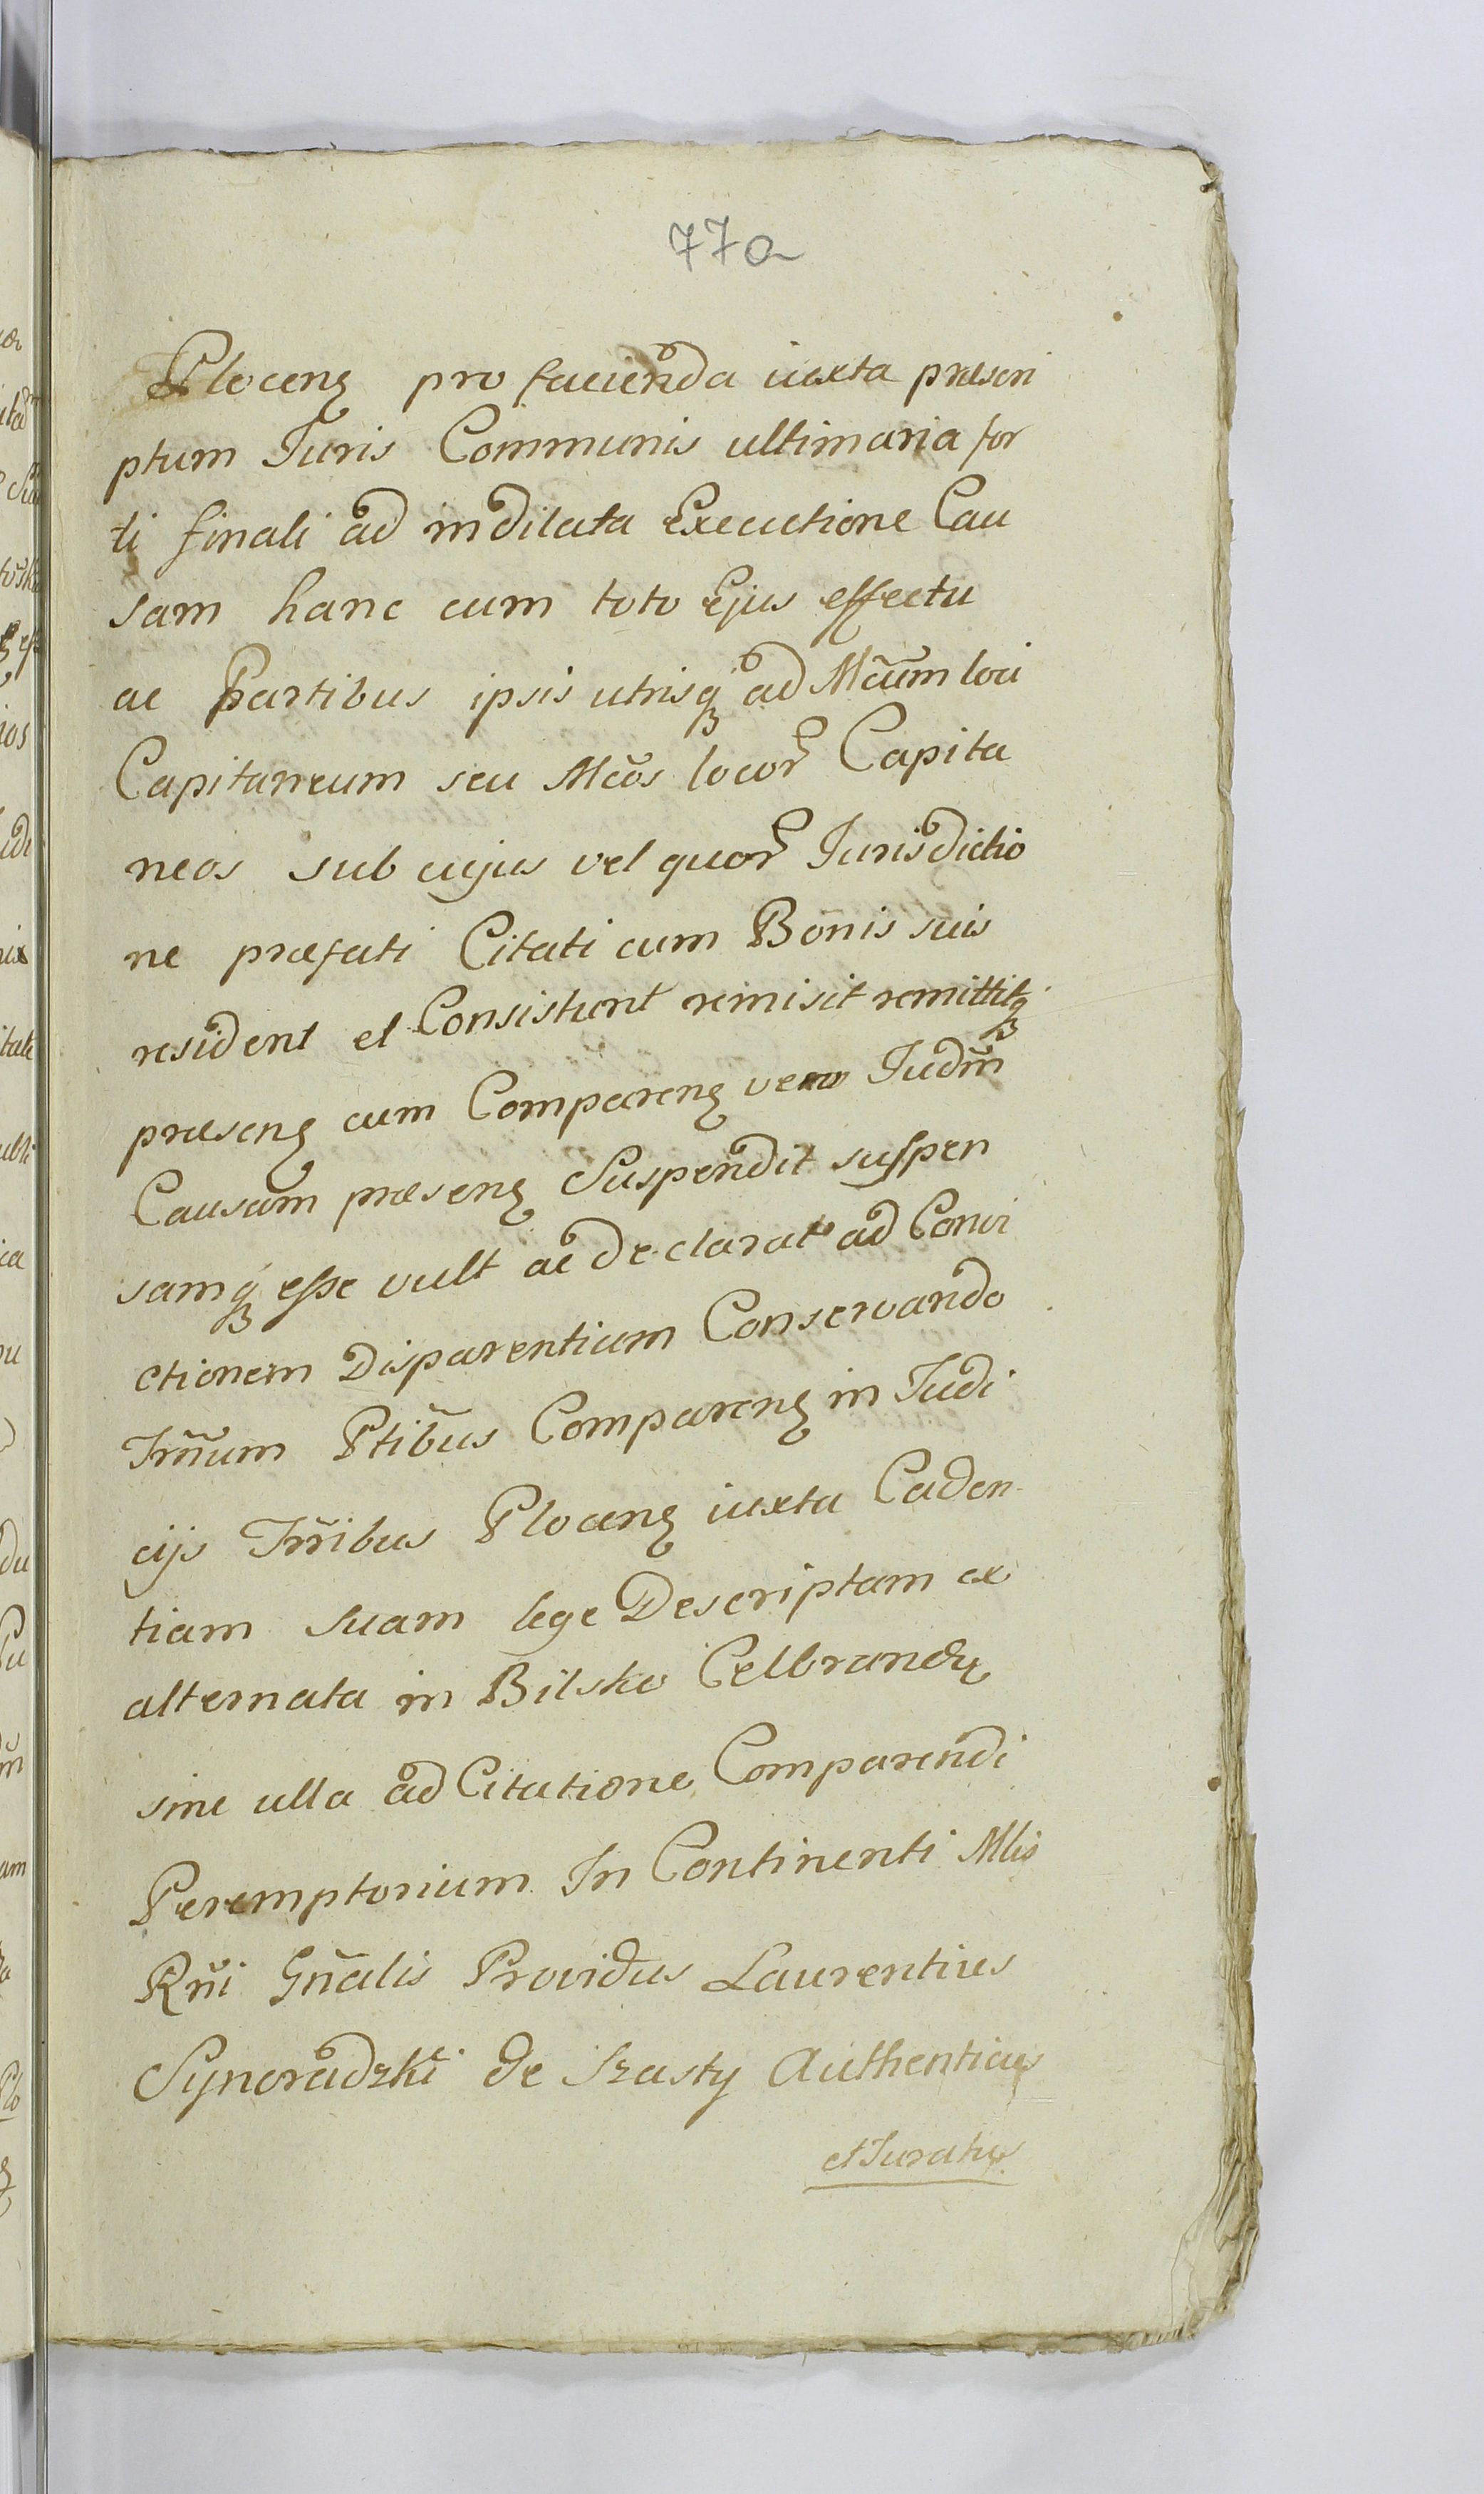 77a
Plocenς pro facienda iuxta præscri
ptum Juris Communis ultimaria for
ti finali ad indilata Executione Cau
sam hanc cum toto Ejus effectu
ac Partibus ipsis utrisqꝫ ad Mcũm loci
Capitaneum seu Mcõs locor Capita
neos sub cujus vel quor Jurisdictio
ne præfati Citati cum Bonis suis
resident et Consistunt remisit remittitqꝫ
præsenς cum Comparenς vero Judm̃
Causam præsenς Suspendit suspen
samqꝫ esse vult ac declarat ad Convi
ctionem Disparentium Conservando
Trm̃num Ptibus Comparenς in Judi
cijs Trr̃ibus Plocenς iuxta Caden
tiam suam lege Descriptam ex
alternata in Bilsko Celbrandς
sine ulla ad Citatione Comparendi
Peremptorium In Continenti Mlis
Rñi Gñalis Providus Laurentius
Synoradzki de Szasty Authenticus
et Juratus